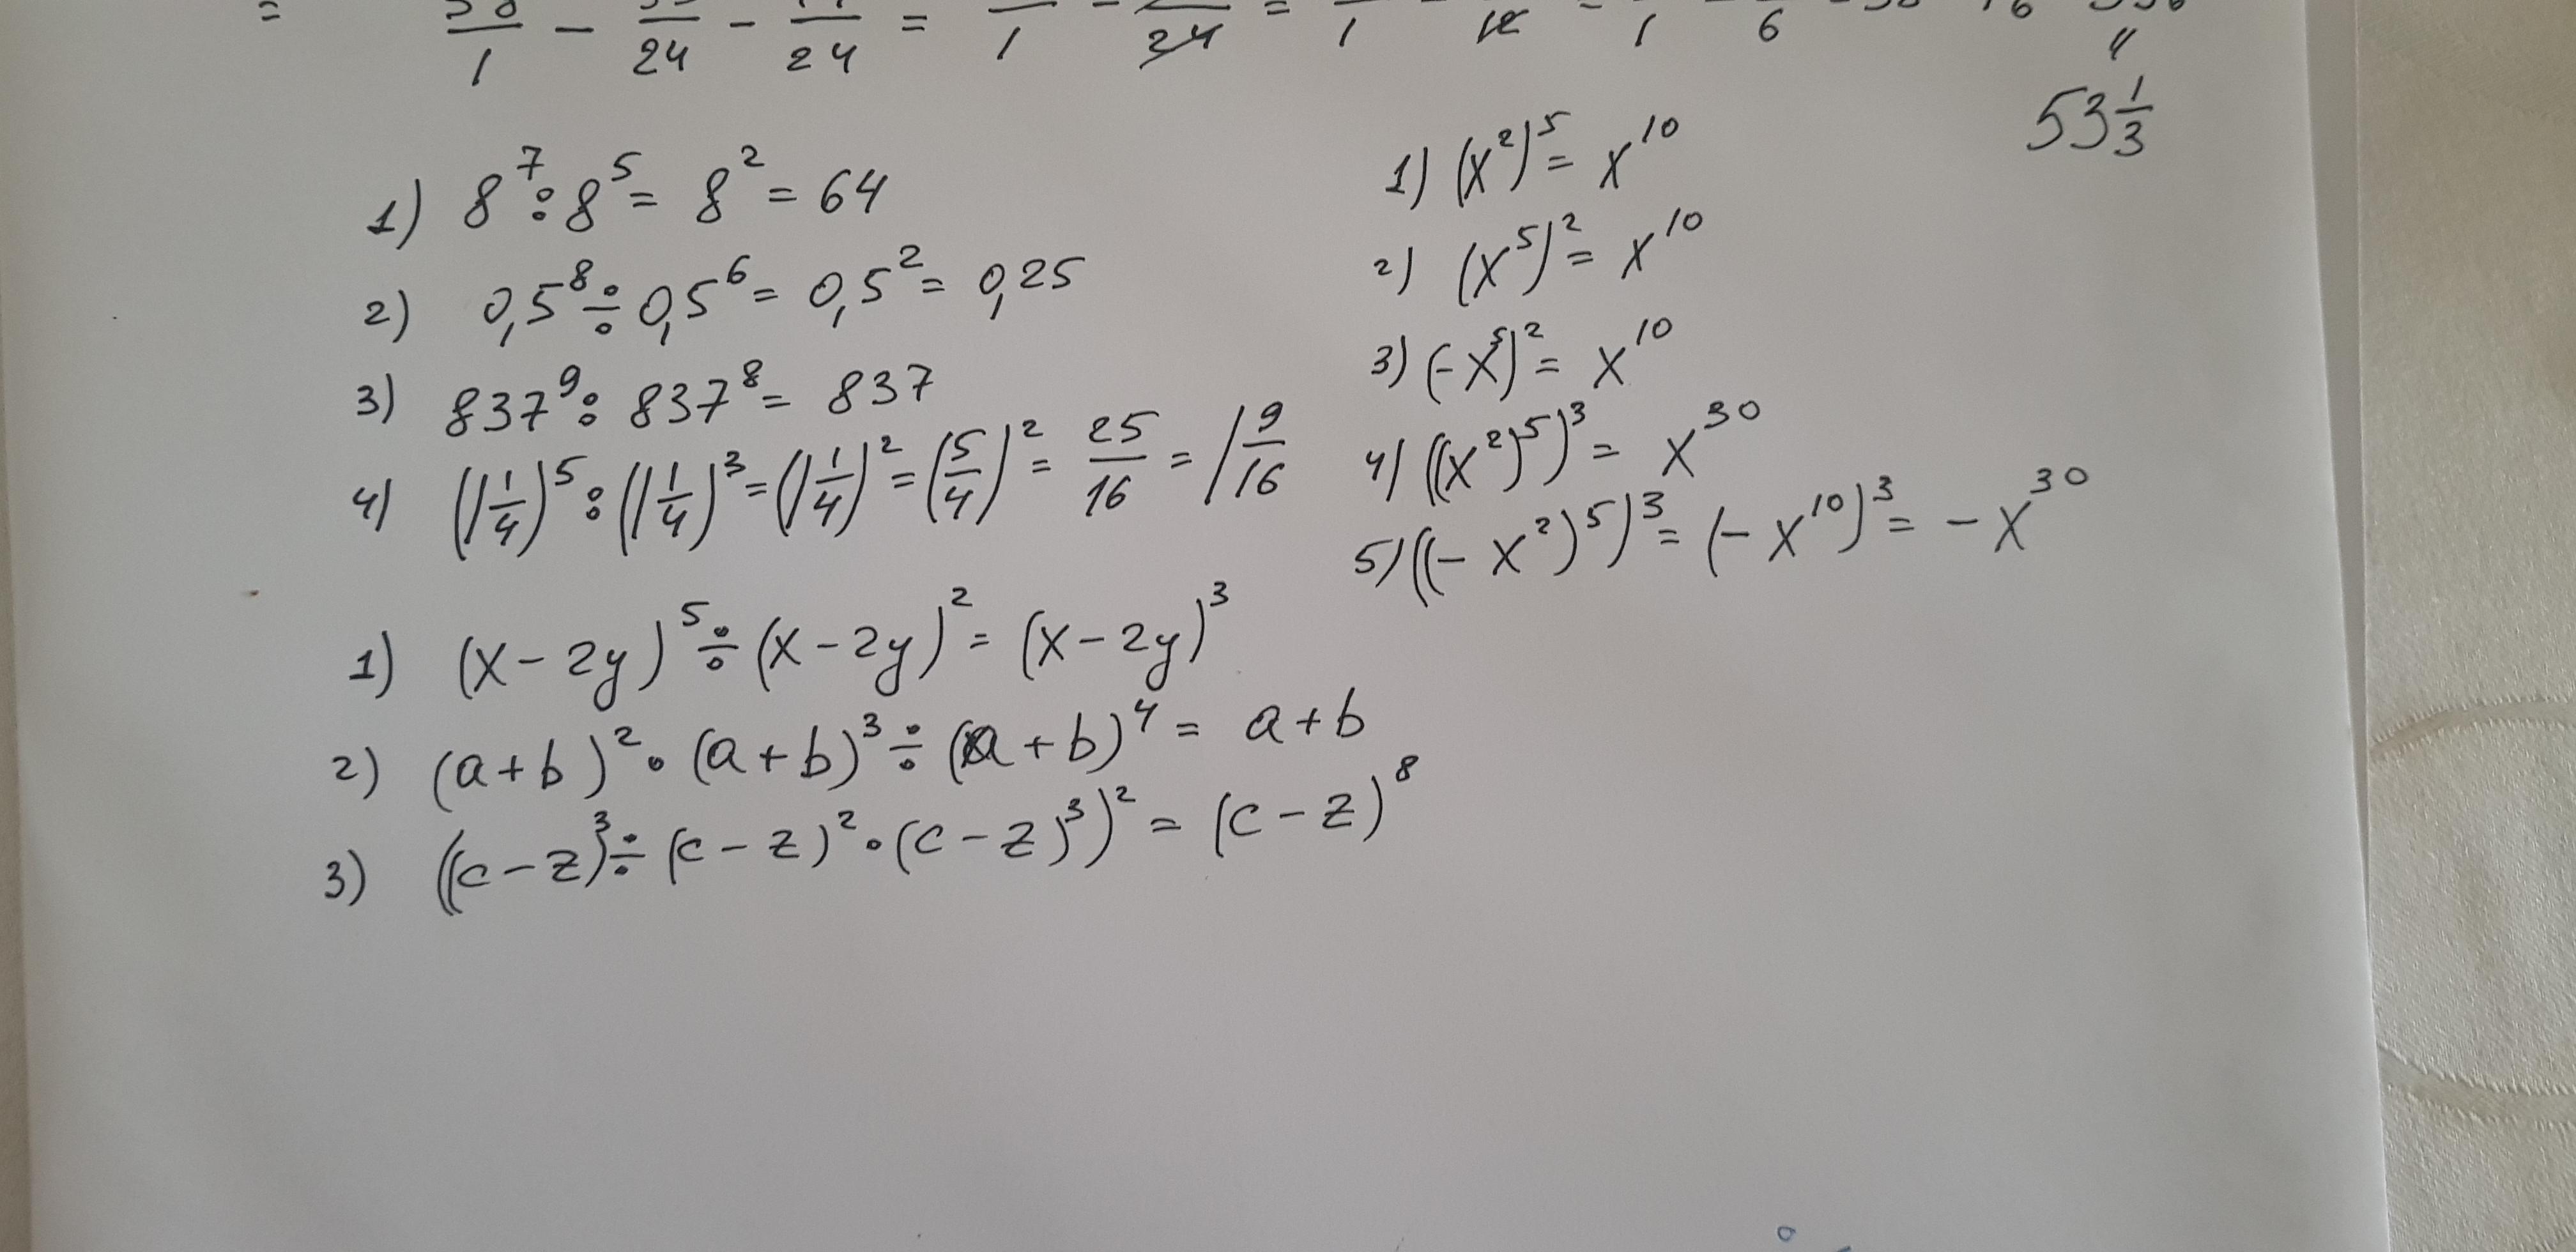 = /1 - /24 - /24 = /1 - /24 = /1 - /12 - /1 /6
53 1/3
1) 8⁷ : 8⁵ = 8² = 64
2) 0,5⁸ ÷ 0,5⁶ = 0,5² = 0,25
3) 837⁹ : 837⁸ = 837
4) (1 1/4)⁵ : (1 1/4)³ = (1 1/4)² = (5/4)² = 25/16 = 1 9/16
1) (x²)⁵ = x¹⁰
2) (x⁵)² = x¹⁰
3) (-x⁵)² = x¹⁰
4) ((x²)⁵)³ = x³⁰
5) ((-x²)⁵)³ = (-x¹⁰)³ = -x³⁰
1) (x - 2y)⁵ ÷ (x - 2y)² = (x - 2y)³
2) (a + b)² • (a + b)³ ÷ (a + b)⁴ = a + b
3) ((c - z)³ ÷ (c - z)² • (c - z)³)² = (c - z)⁸